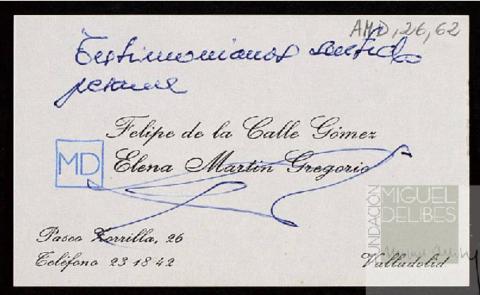 AMD, 26, 62
Testimoniamos sentido
pesame
Felipe de la Calle Gómez
MD
Elena Martín Gregorio
FUNDACIÓN
MIGUEL
DELIBES
Paseo Zorrilla, 26
Teléfono 23 18 42
Valladolid